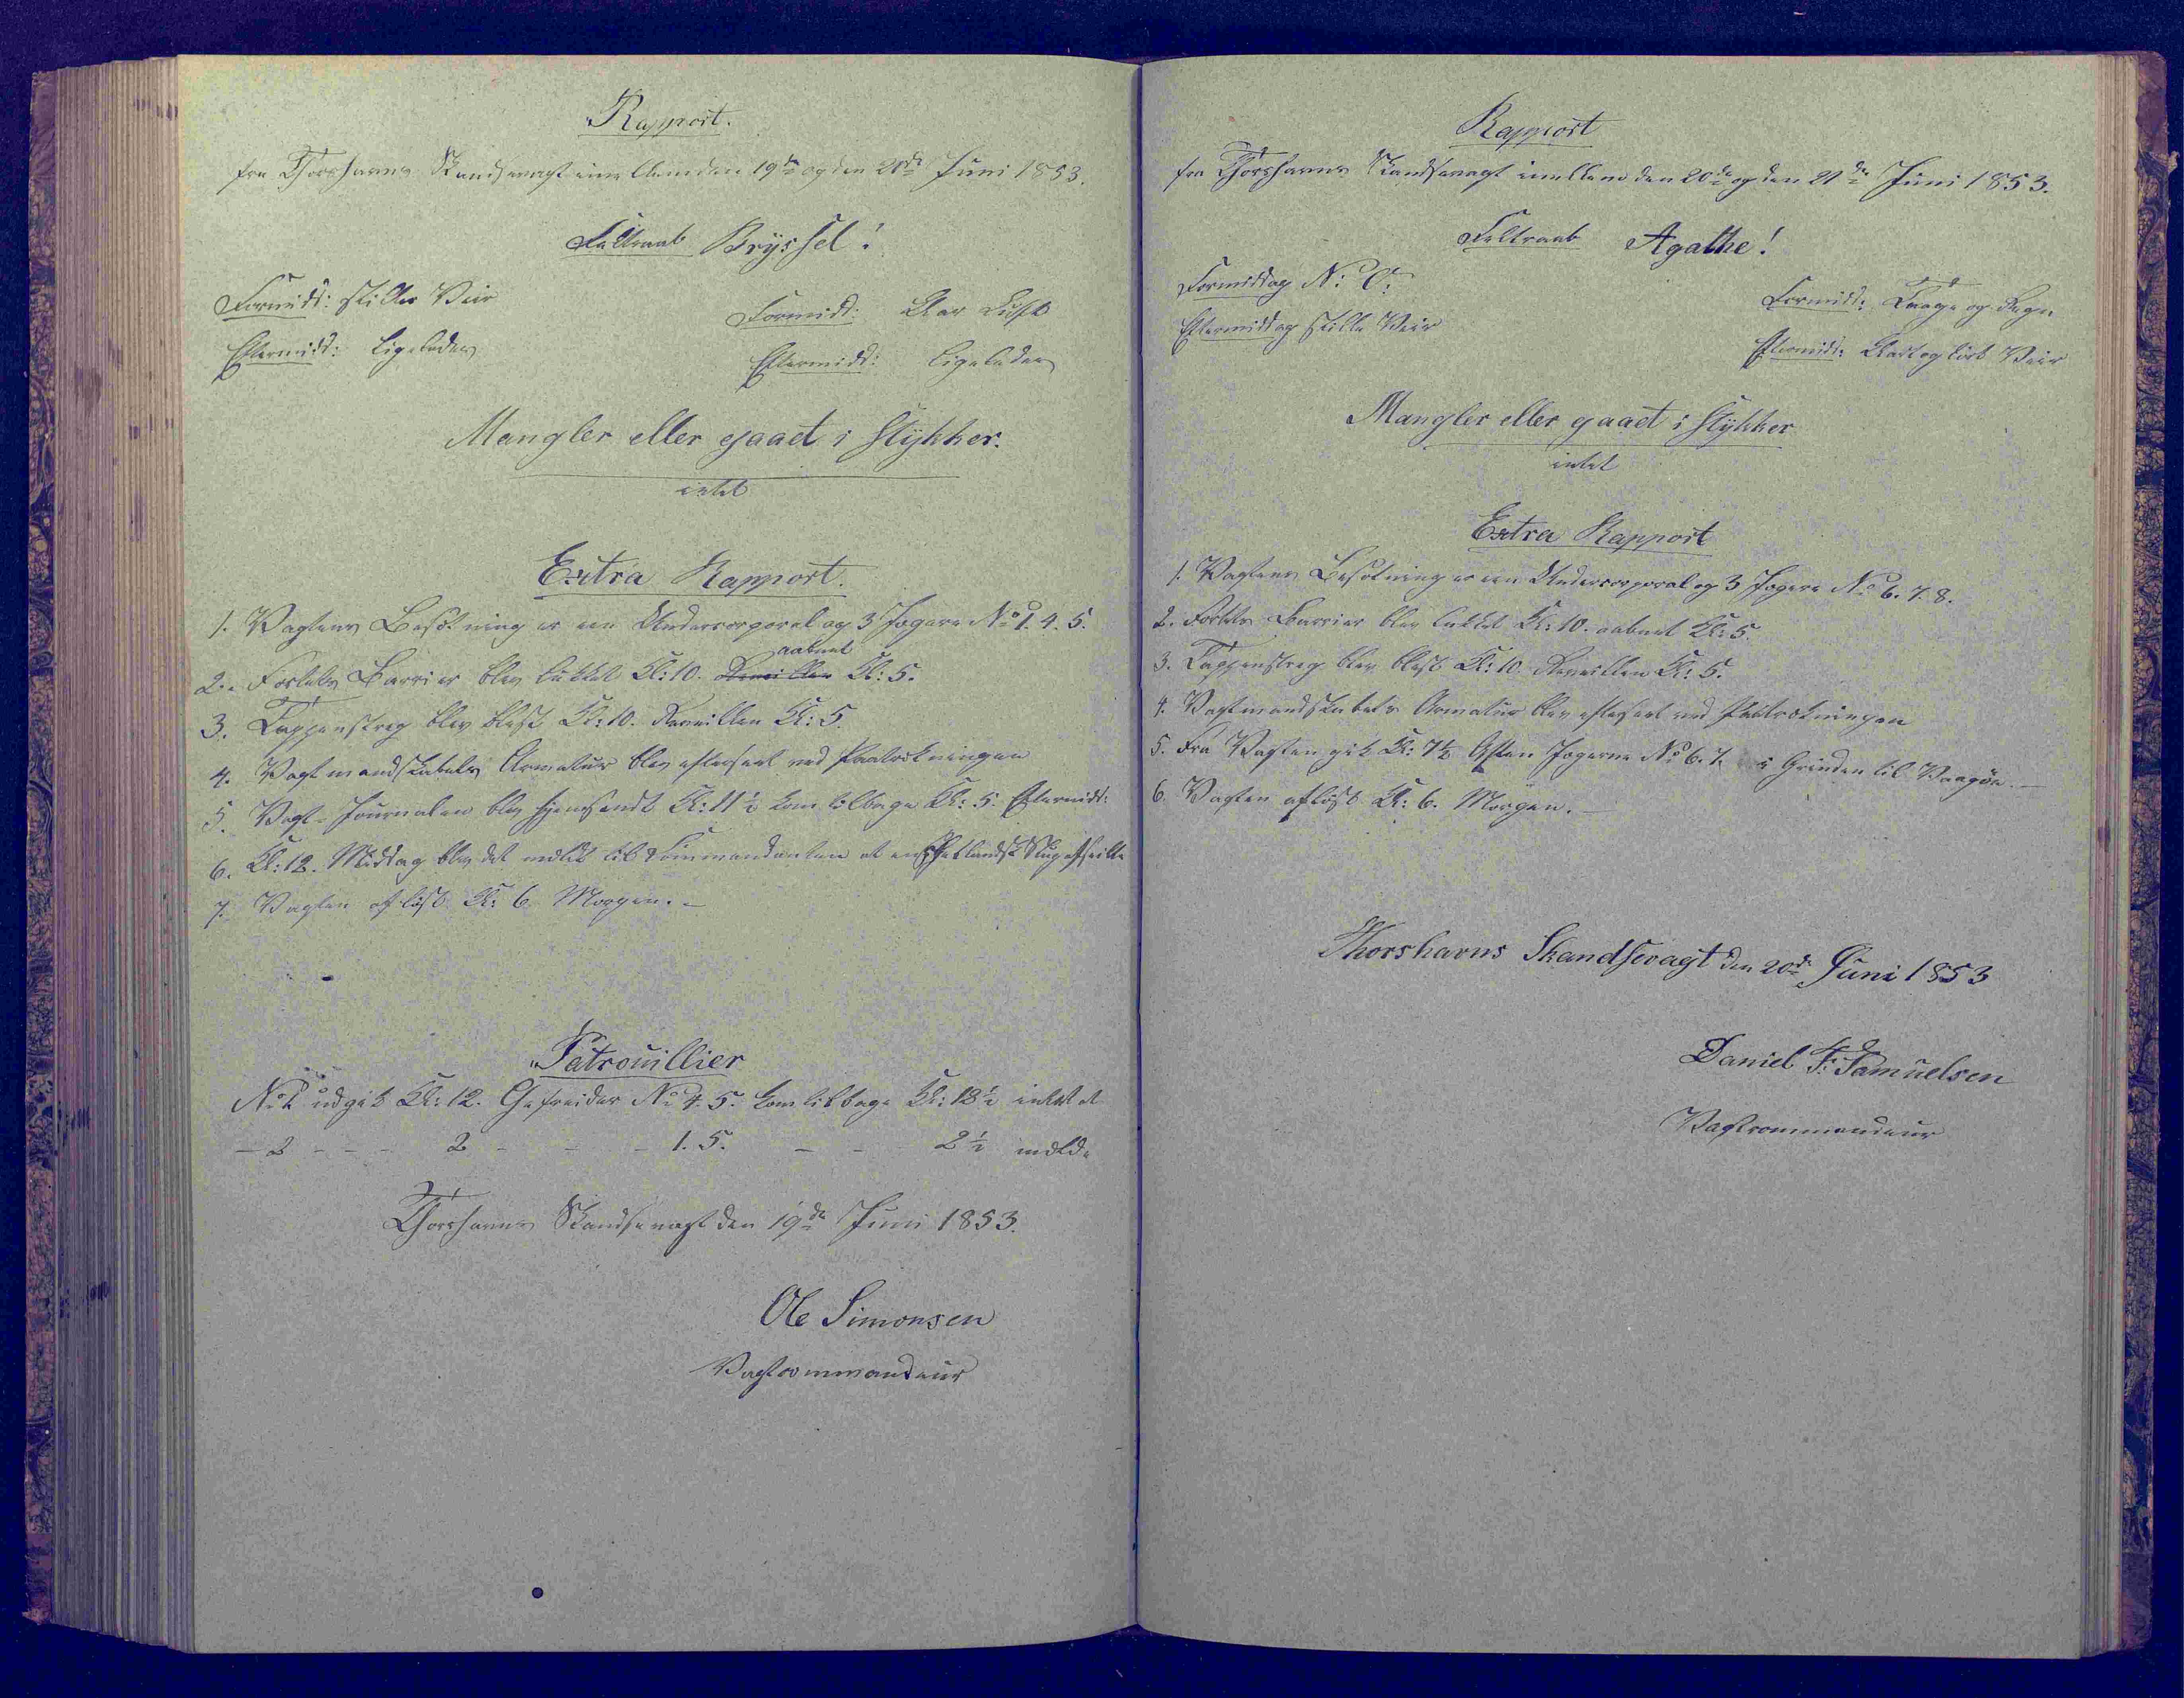 Rapport.
fra Thorshavns Skandsevagt imellem den 19de og den 20de Juni 1853.
Feltraab Bryssel!
Formidd: stille Veir
Eftermidd: ligeledes
Formidd: Klar Luft
Eftermidd: ligeledes
Mangler eller gaaet i Stykker.
intet
Extra Rapport.
1. Vagtens Besætning er een Undercorporal og 3 Jægere No 1. 4. 5.
2. Fortets Barrier blev lukket Kl: 10. aabnet Kl: 5.
3. Tappenstreg blev blæst Kl: 10. Reveillen Kl: 5.
4. Vagtmandskabets Armatur blev efterseet ved Paatrækningen
5. Vagt-Journalen blev hjemsendt Kl: 11½ kom tilbage Kl: 5. Eftermidd:
6. Kl: 12. Middag blev det meldt til Kommandanten at en Shetlandsk Slup afseilte
7. Vagten afløst Kl: 6 Morgen. –
Patrouillier
No 1 udgik Kl: 12. Gefreider No 4. 5. kom tilbage Kl: 12½ intet at
– 2 – – – 2 – – – 1. 5. – – – 2½ melde
Thorshavns Skandsevagt den 19de Juni 1853.
Ole Simonsen
Vagtcommandeur
Rapport
fra Thorshavns Skandsevagt imellem den 20de og den 21de Juni 1853.
Feltraab Agathe!
Formiddag N: O:
Eftermiddag stille Veir
Formidd: Taage og Regn
Eftermidd: Klart og tört Veir
Mangler eller gaaet i Stykker
intet
Extra Rapport
1. Vagtens Besætning er een Undercorporal og 3 Jægere No 6. 7. 8.
2. Fortets Barrier blev lukket Kl: 10. aabnet Kl: 5.
3. Tappenstreg blev blæst Kl: 10. Reveillen Kl: 5.
4. Vagtmandskabets Armatur blev efterseet ved Paatrækningen
5. Fra Vagten gik Kl: 7½ Aften Jægerne No 6. 7. i Grinden til Vaagöe. –
6. Vagten afløst Kl: 6. Morgen. –
Thorshavns Skandsevagt den 20de Juni 1853
Daniel F: Samuelsen
Vagtcommandeur